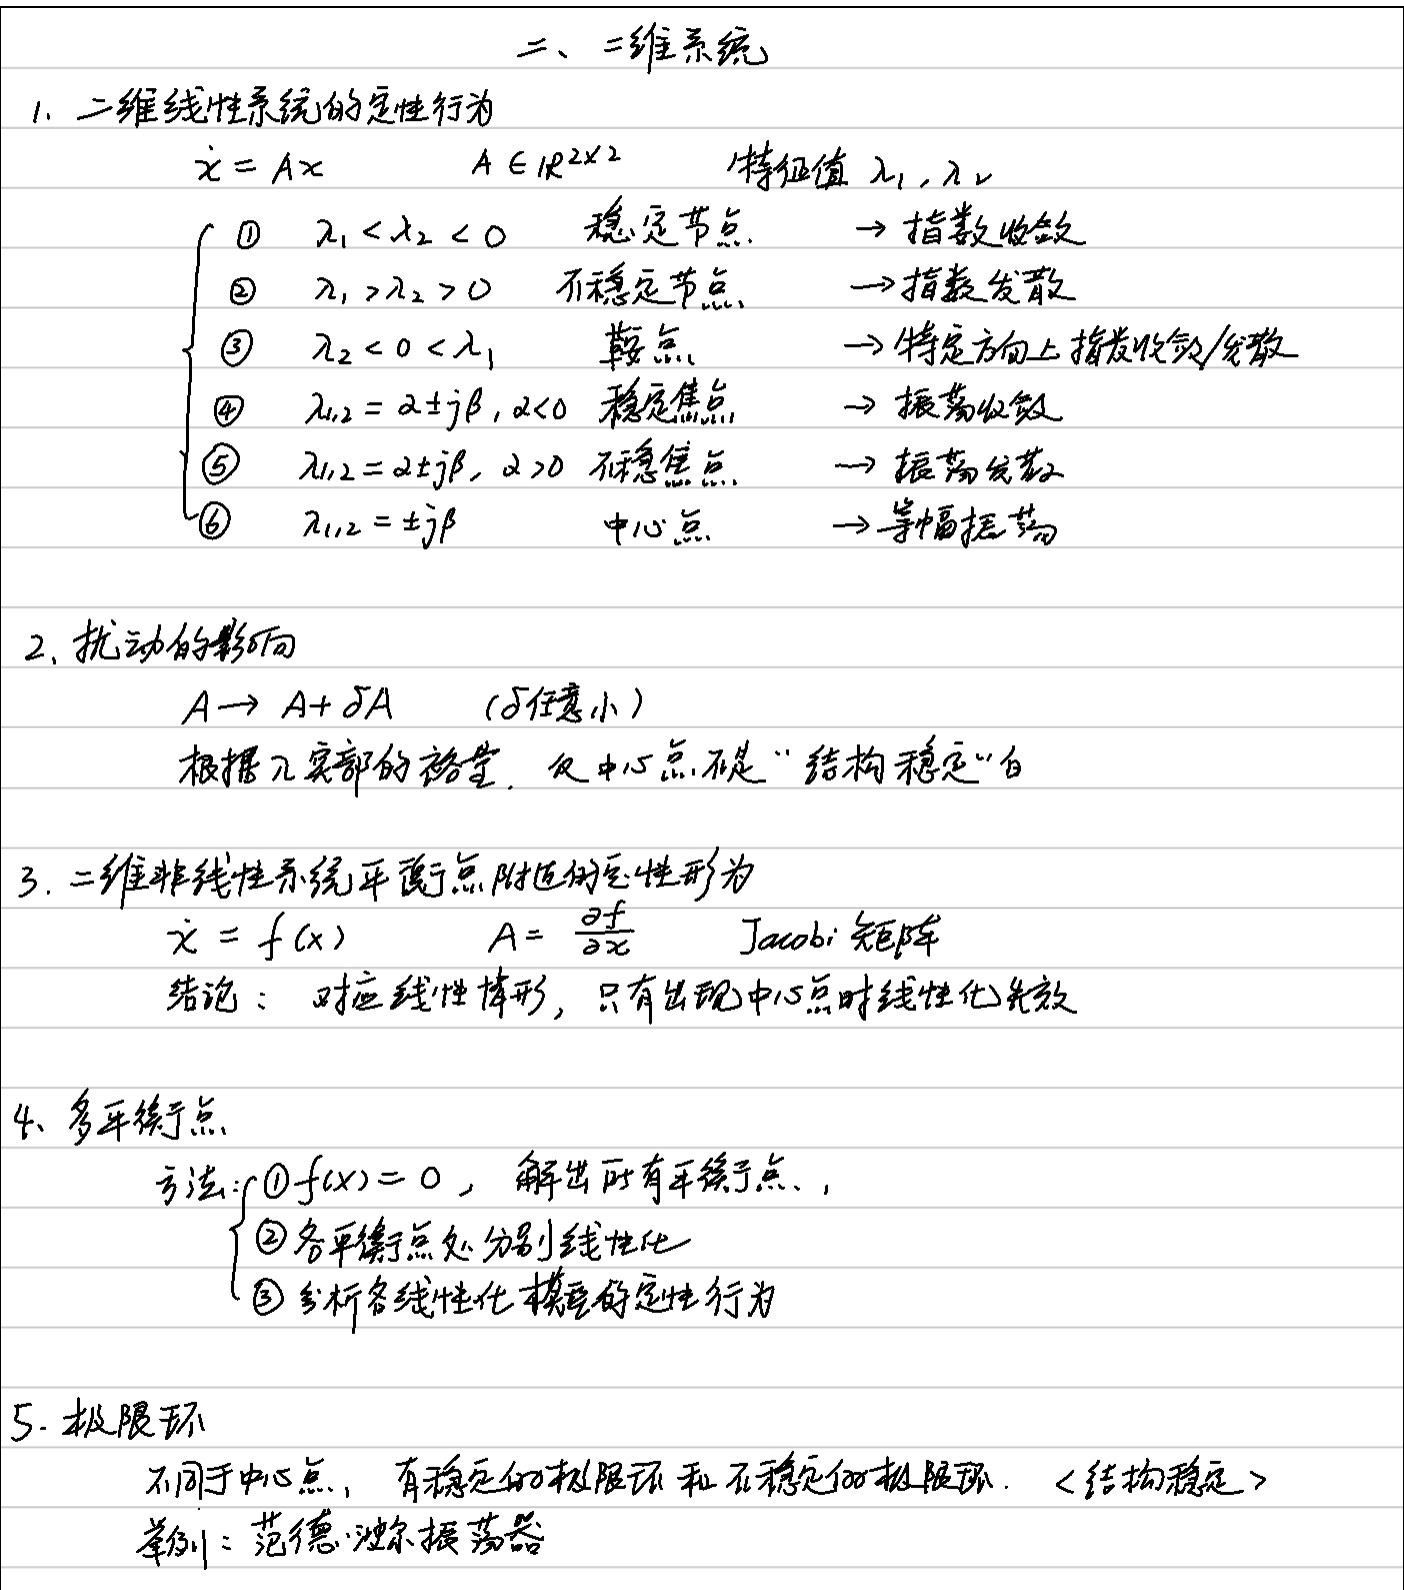 二、二维系统
1. 二维线性系统的定性行为
ẋ = Ax A ∈ ℝ^{2×2} 特征值 λ₁, λ₂
① λ₁ < λ₂ < 0 稳定节点 → 指数收敛
② λ₁ > λ₂ > 0 不稳定节点 → 指数发散
③ λ₂ < 0 < λ₁ 鞍点 → 特定方向上指发收敛/发散
④ λ₁,₂ = α ± jβ, α<0 稳定焦点 → 振荡收敛
⑤ λ₁,₂ = α ± jβ, α>0 不稳焦点 → 振荡发散
⑥ λ₁,₂ = ± jβ 中心点 → 等幅振荡
2. 扰动的影响
A → A + δA (δ任意小)
根据λ实部的裕量. 仅中心点不是"结构稳定"白
3. 二维非线性系统平衡点附近的定性形为
ẋ = f(x) A = ∂f/∂x Jacobi 矩阵
结论: 对应线性情形, 只有出现中心点时线性化失效
4. 多平衡点
方法: ① f(x) = 0, 解出所有平衡点,
② 各平衡点处分别线性化
③ 分析各线性化模型的定性行为
5. 极限环
不同于中心点, 有稳定的极限环和不稳定的极限环. <结构稳定>
举例: 范德·波尔振荡器